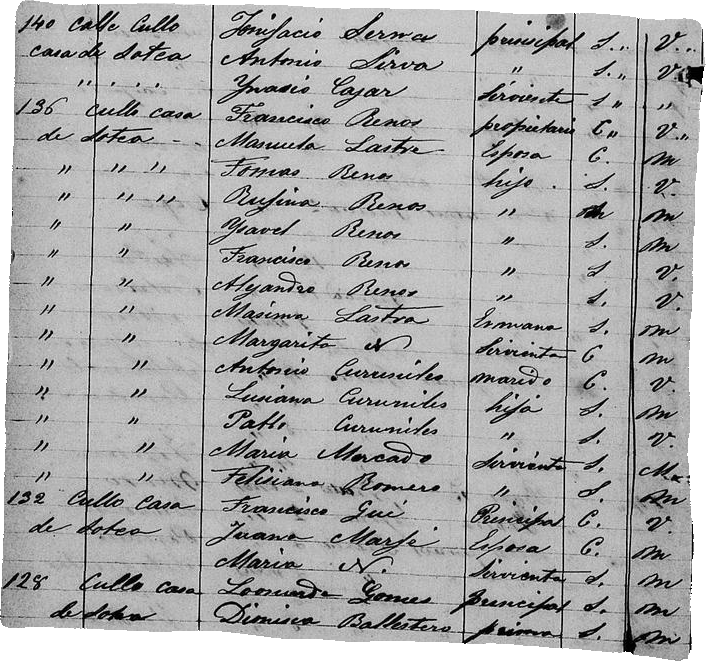 140 calle Cullo Bonifacio Serna principal S. V.
casa de Sotea Antonio Sirva " S. V.
" " " Ynasio Cajar Sirviente S " "
136 Cullo casa Francisco Renos propietario C " V.
de Sotea - - Manuela Lastra Esposa C. m
" " " Tomas Renos hijo . S. V.
" " " Rufina Renos " m
" " Ysavel Renos " S. m
" " Francisco Renos " S V.
" " Alejandro Renos " S. V.
" " Masima Lastra Ermana S. m
" " Margarita N Sirvienta C m
" " Antonio Curuniles marido C. V.
" " Lusiana Curuniles hija S. m
" " Pablo Curuniles " S. V.
" " Maria Mercado Sirvienta S. M
" " Felisiana Romero " S. m
132 Cullo Casa Francisco Gué Principal C. V.
de Sotea Juana Marsé Esposa C. m
Maria N. Sirvienta S. m
128 Cullo casa Leonarda Gomes principal S. m
de Sotea Dionisia Ballestero prima S. m